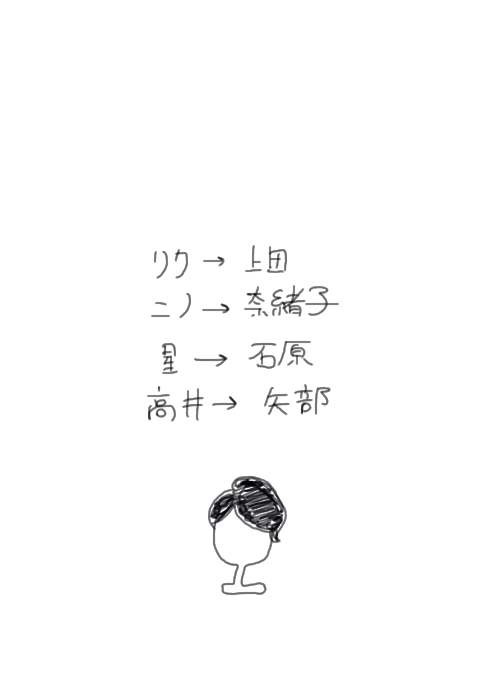 リク→上田
ニノ→奈緒子
星→石原
高井→矢部